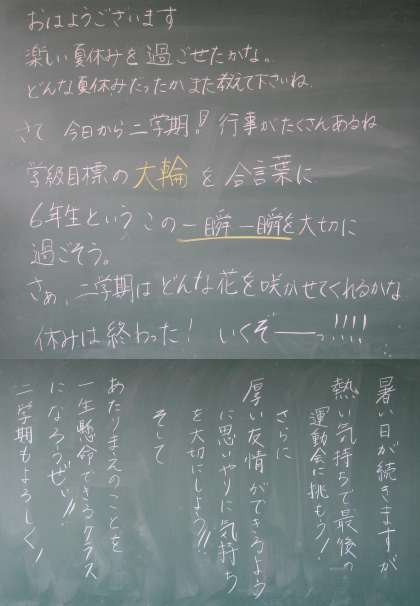 おはようございます
楽しい夏休みを過ごせたかな。
どんな夏休みだったか また教えて下さいね
さて 今日から二学期!! 行事がたくさんあるね
学級目標の大輪を合言葉に
6年生という この一瞬一瞬を大切に
過ごそう。
さぁ、二学期はどんな花を咲かせてくれるかな
休みは終わった! いくぞーっ!!!!
暑い日が続きますが
熱い気持ちで最後の
運動会に挑もう!
さらに
厚い友情ができるよう
に思いやりに気持ち
を大切にしよう!!
そして
あたりまえのことを
一生懸命できるクラス
になろうぜい!!
二学期もよろしく!